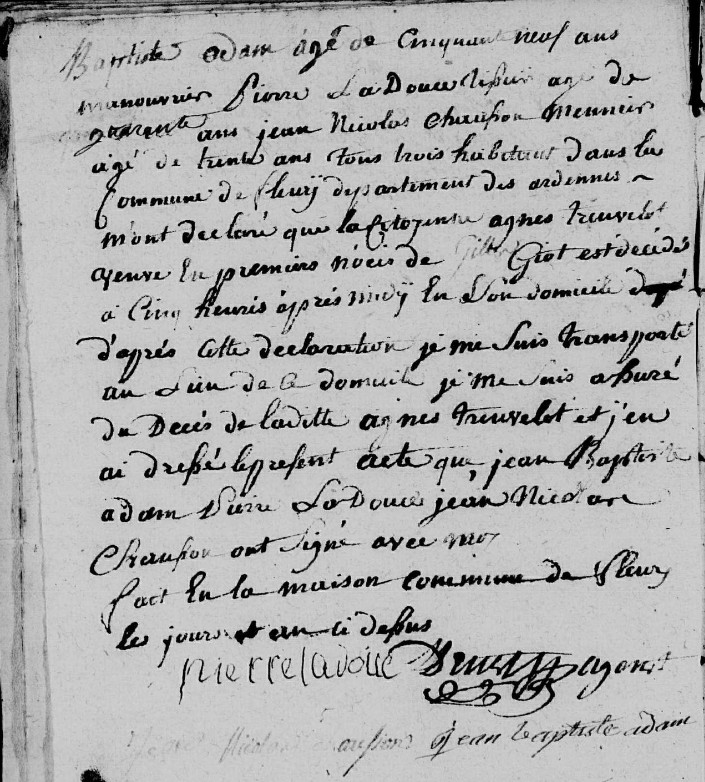 Baptiste adam âgé de Cinquant neuf ans
manouvrier Pierre La Douce agé de
quarente ans jean Nicolas Chausson Meunier
agé de trente ans tous trois habitant dans la
Commune de fleury departement des ardennes
m'ont declaré que la Citoyenne agnes treuvelot
veuve En premiers nôces de Giot est décédé
a Cinq heures aprés midy En Son domicile
d'aprés cette declaration je me Suis transporté
au Lieu de ce domicile je me Suis assuré
du Decés de laditte agnes treuvelot et j'en
ai dressé le present acte que jean Baptiste
adam Pierre La Douce jean Nicolas
Chausson ont Signé avec moy
fait En la maison commune de fleury
les jours et an ci dessus
pierre la douce agent
jean baptiste adam